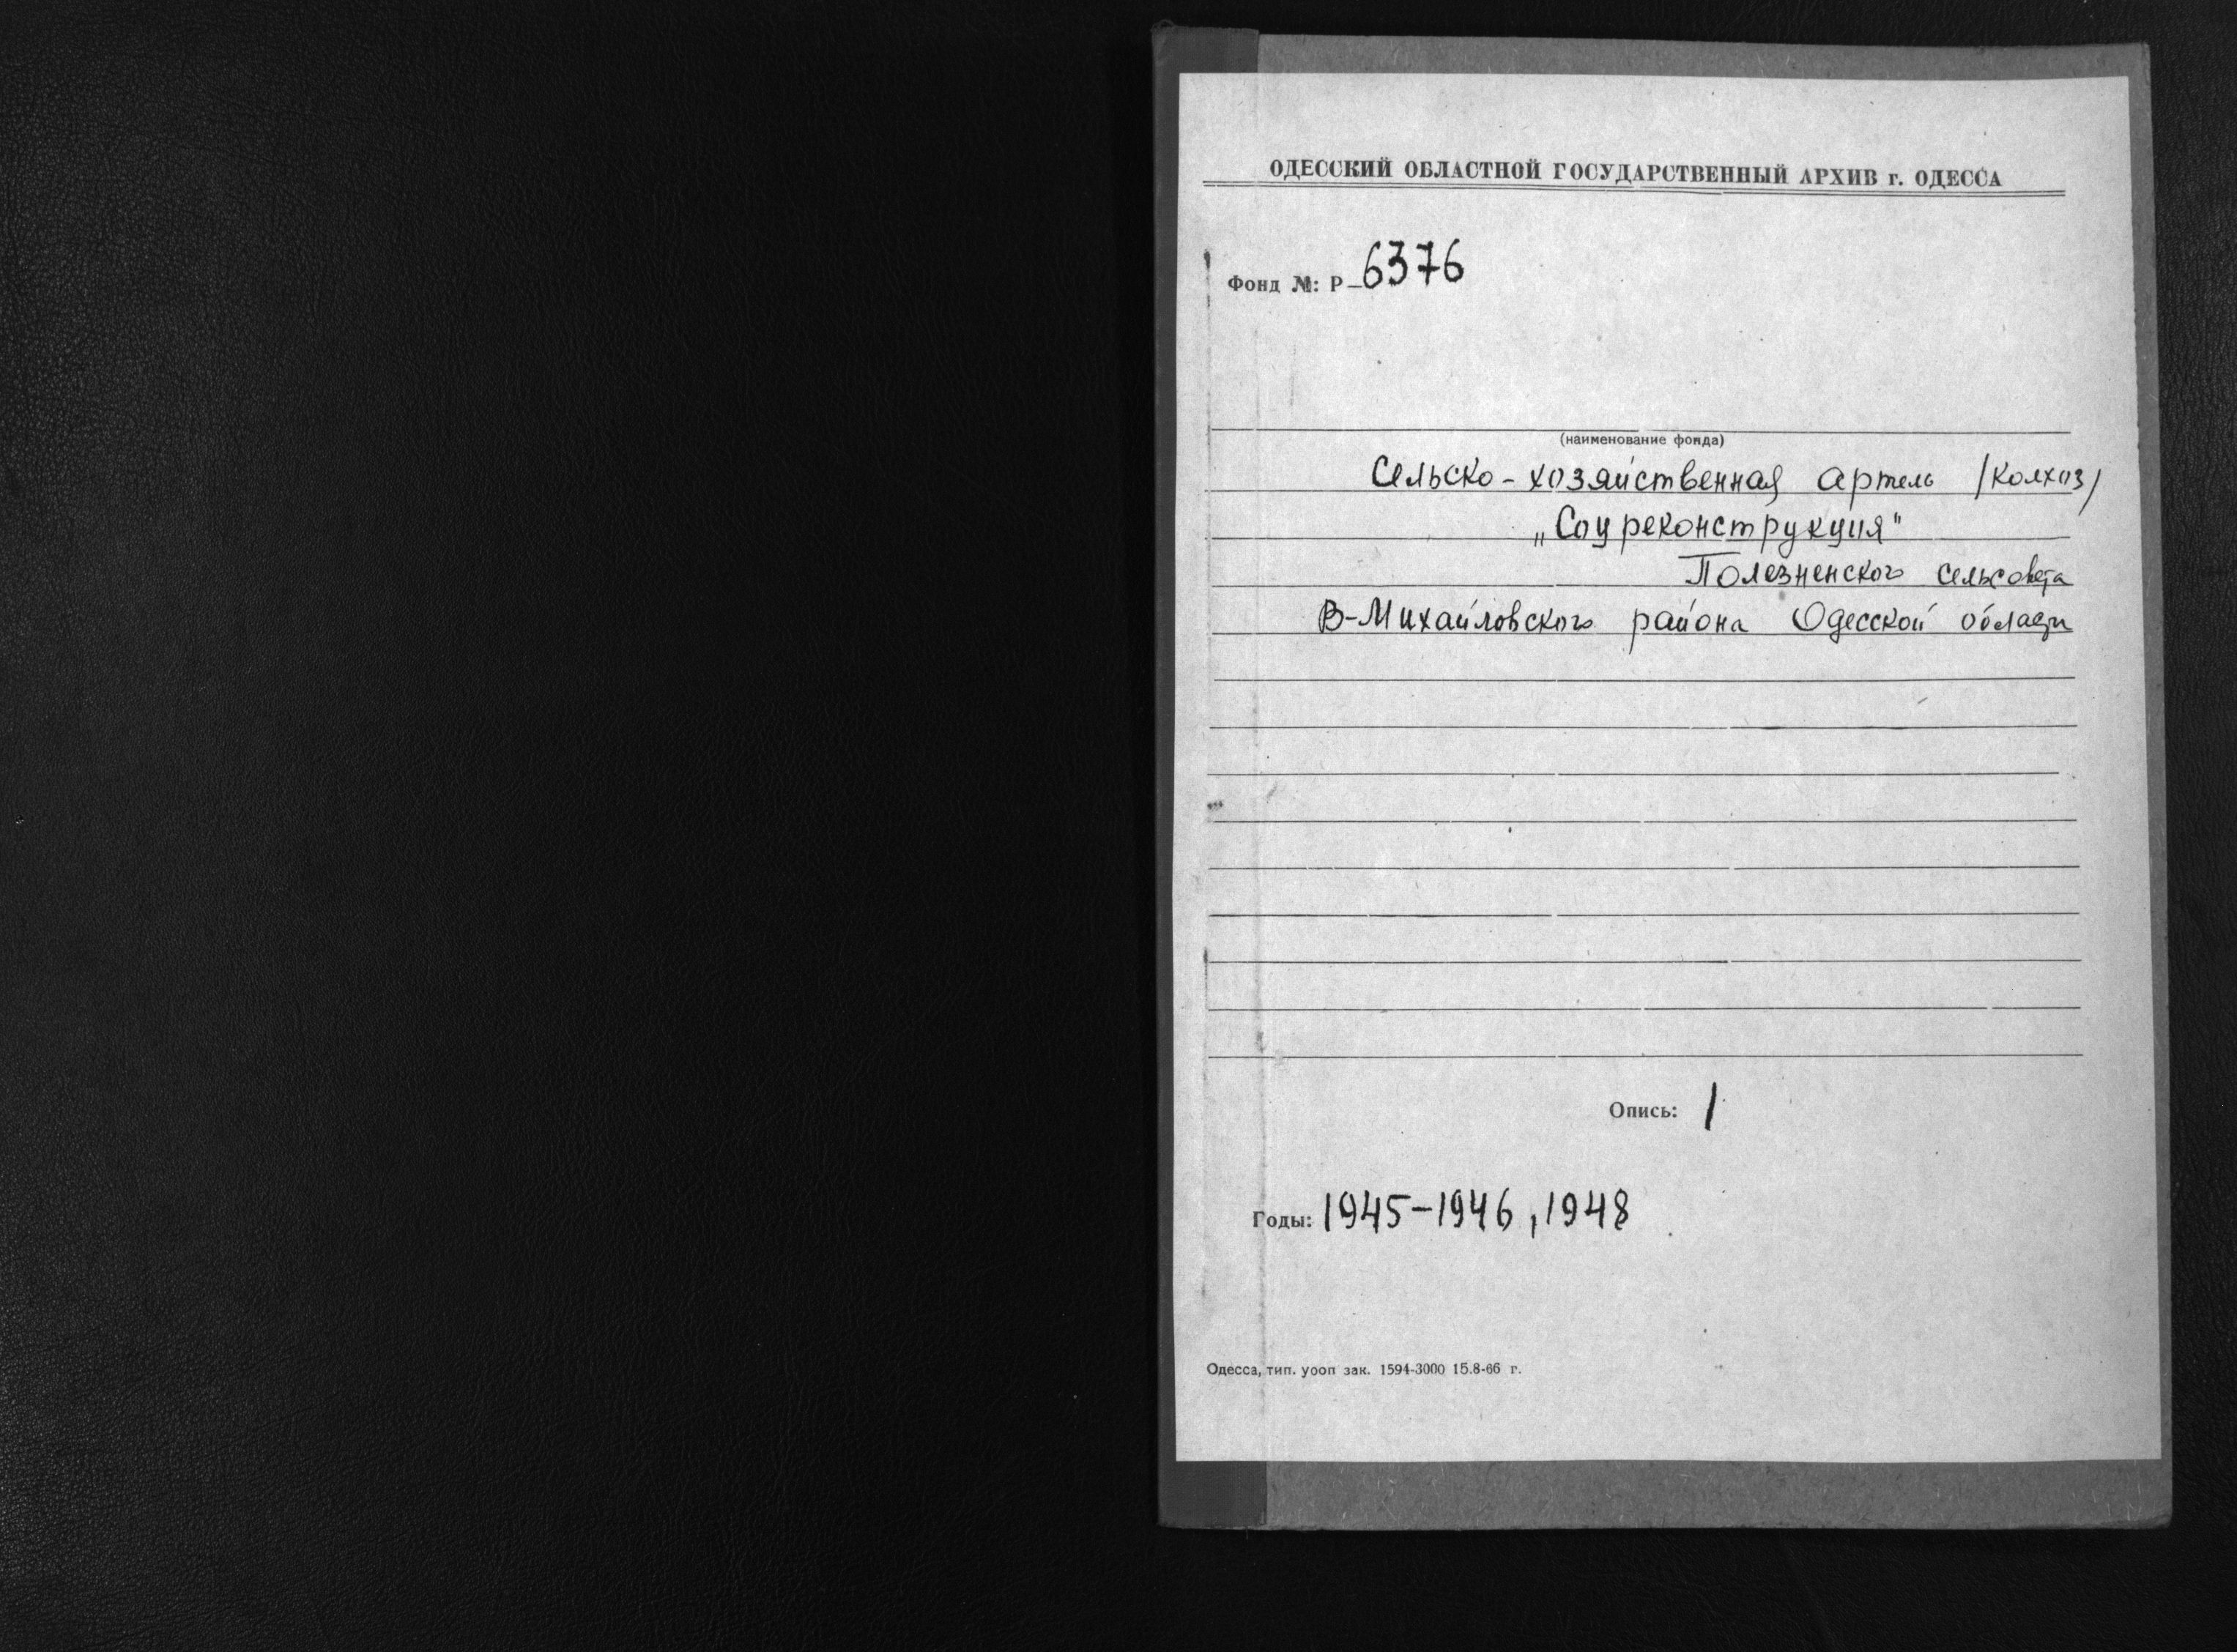 ОДЕССКИЙ ОБЛАСТНОЙ ГОСУДАРСТВЕННЫЙ АРХИВ г. ОДЕССА
Фонд №: Р-6376
(наименование фонда)
Сельско-хозяйственная артель /колхоз/
„Соцреконструкция"
Полезненского сельсовета
В-Михайловского района Одесской области
Опись: 1
Годы: 1945-1946, 1948
Одесса, тип. уооп зак. 1594-3000 15.8-66 г.